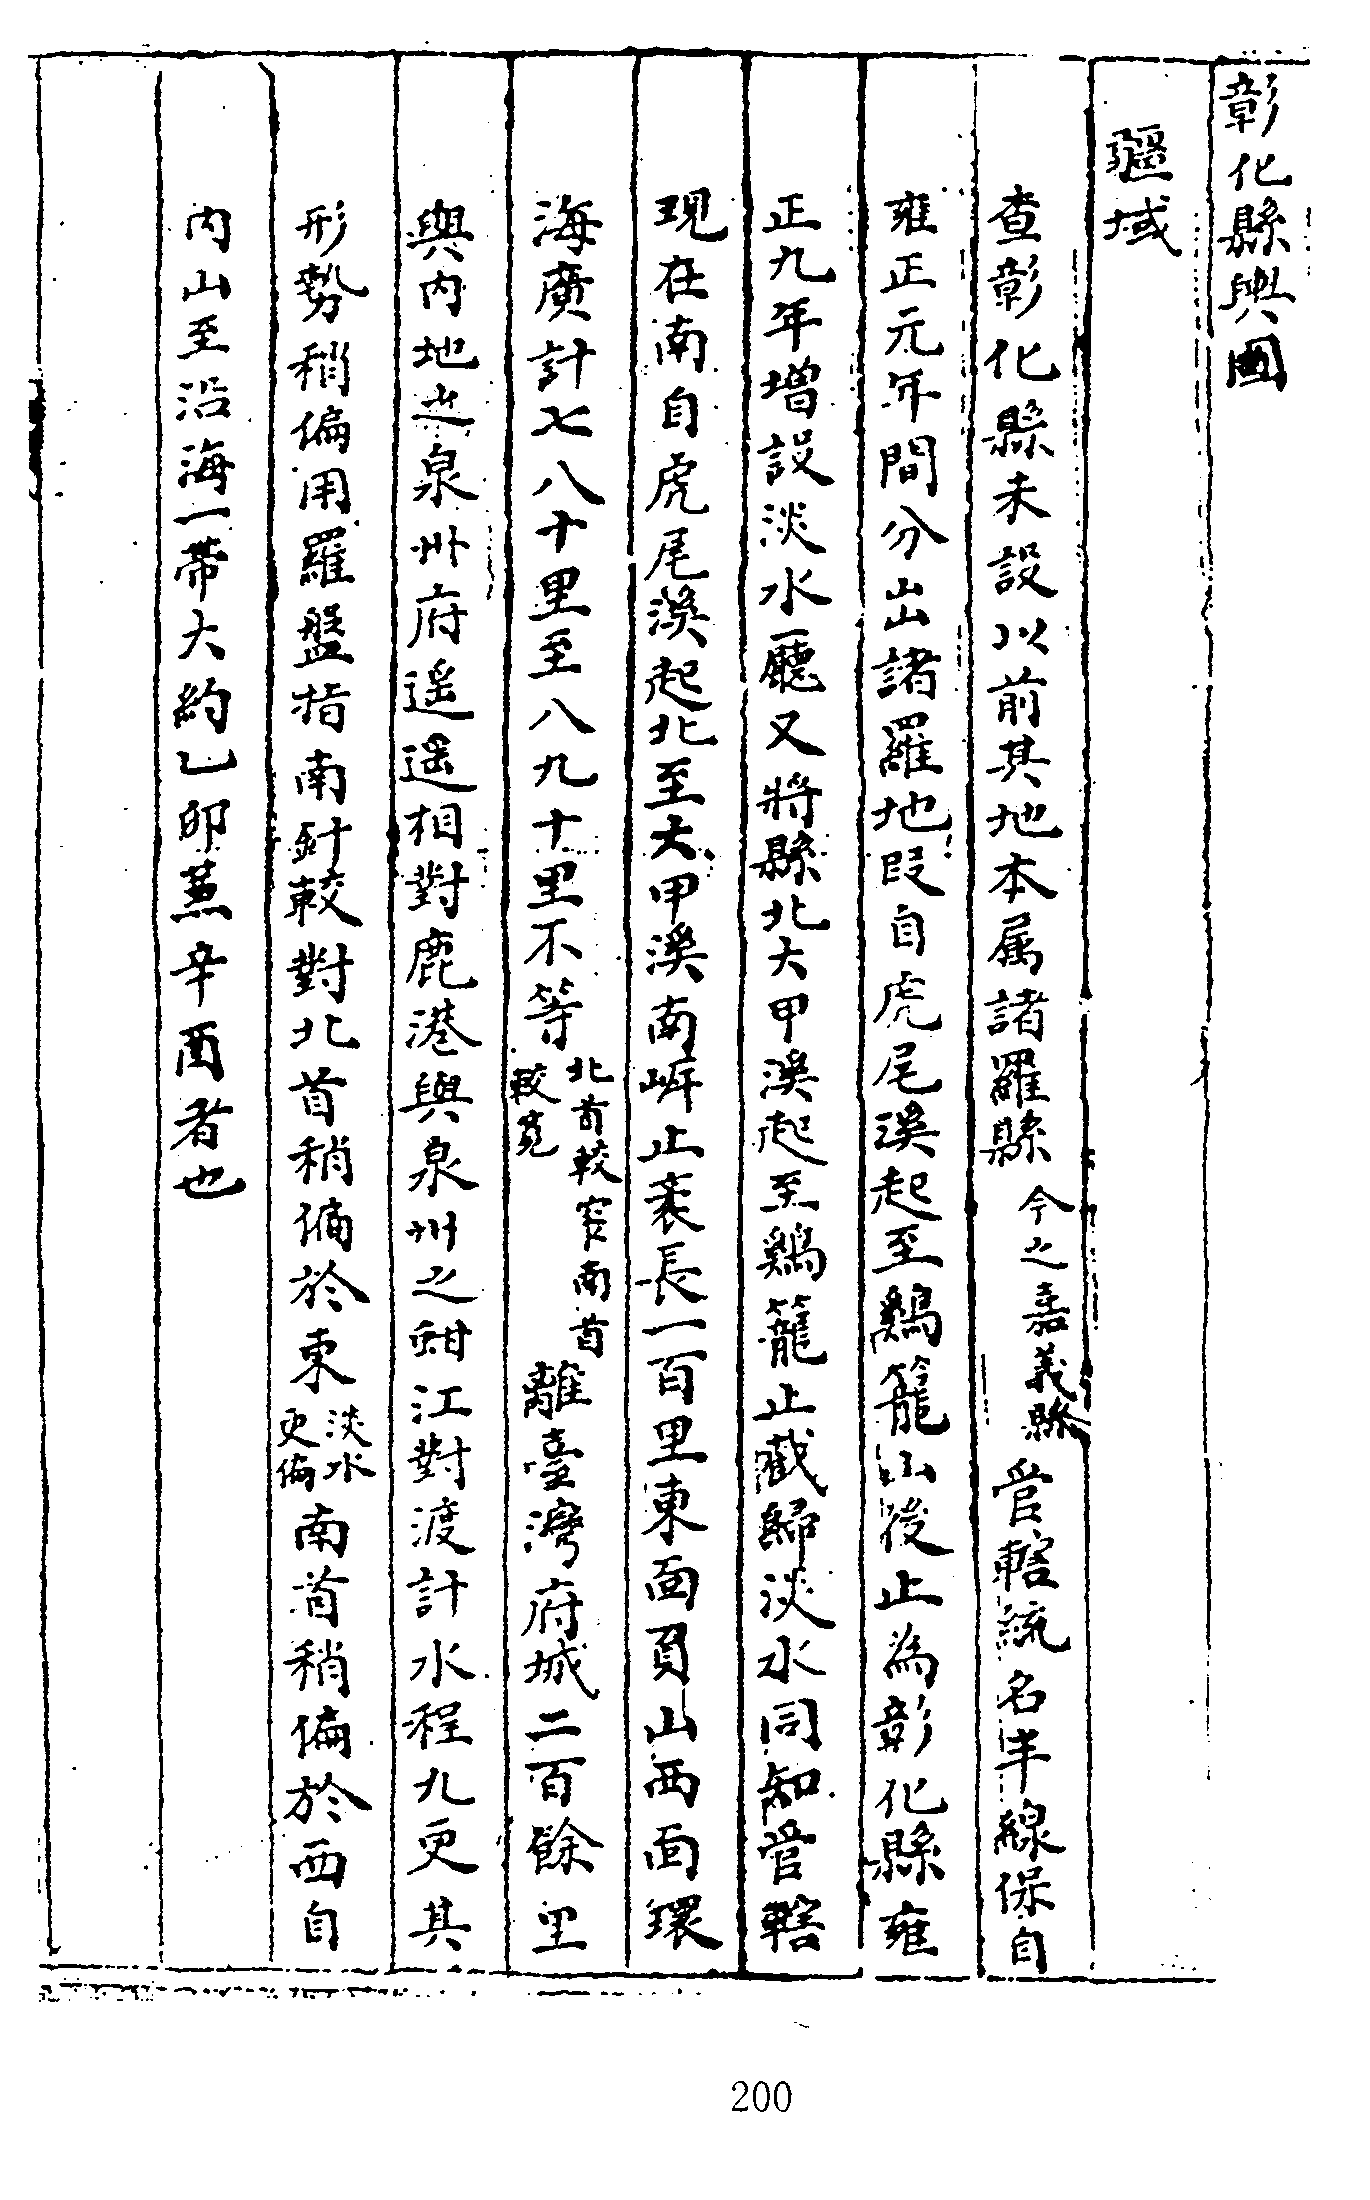 彰化縣輿圖
疆域
查彰化縣未設以前其地本属諸羅縣今之嘉義縣管轄統名半線保自
雍正元年間分出諸羅地段自虎尾溪起至鷄籠山後止為彰化縣雍
正九年增設淡水廳又將縣北大甲溪起至鷄籠止截歸淡水同知管轄
現在南自虎尾溪起北至大甲溪南岸止袤長一百里東面負山西面環
海廣計七八十里至八九十里不等北首較窄南首較寬離臺灣府城二百餘里
與内地之泉州府遥遥相對鹿港與泉州之蚶江對渡計水程九更其
形勢稍偏用羅盤指南針較對北首稍偏於東淡水更偏南首稍偏於西自
内山至沿海一帶大約乙卯蒹辛酉者也
200